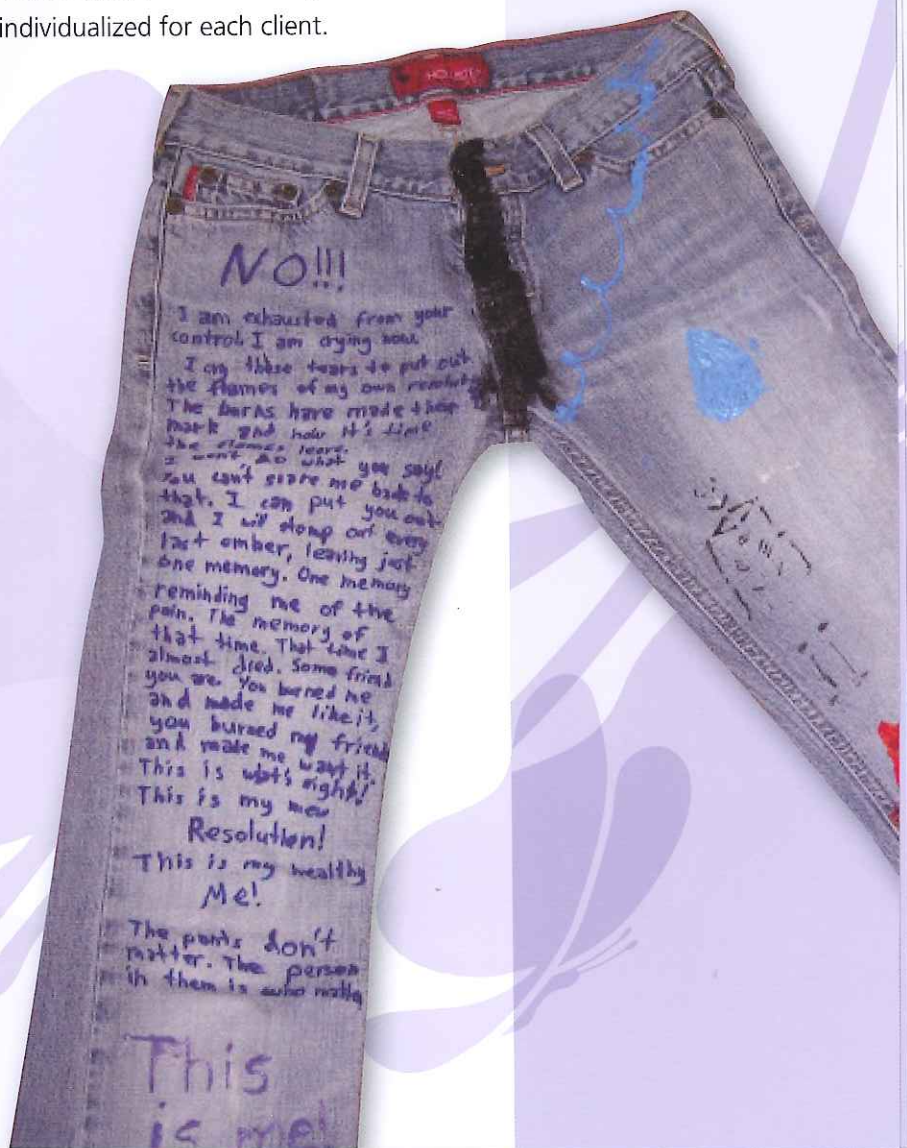 individualized for each client.
HOLLISTER
NO!!!
I am exhausted from your
control. I am crying now.
I cry these tears to put out
the flames of my own resolut
The burns have made their
mark and now it's time
the flames leave.
I won't do what you say!
You can't scare me back to
that. I can put you out
and I will stomp out every
last ember, leaving just
one memory. One memory
reminding me of the
pain. The memory of
that time. That time I
almost died. Some friend
you are. You burned me
and made me like it,
you burned my friend
and made me want it.
This is what's right!
This is my new
Resolution!
This is my healthy
Me!
The pants don't
matter. The person
in them is who matte
This
is me!